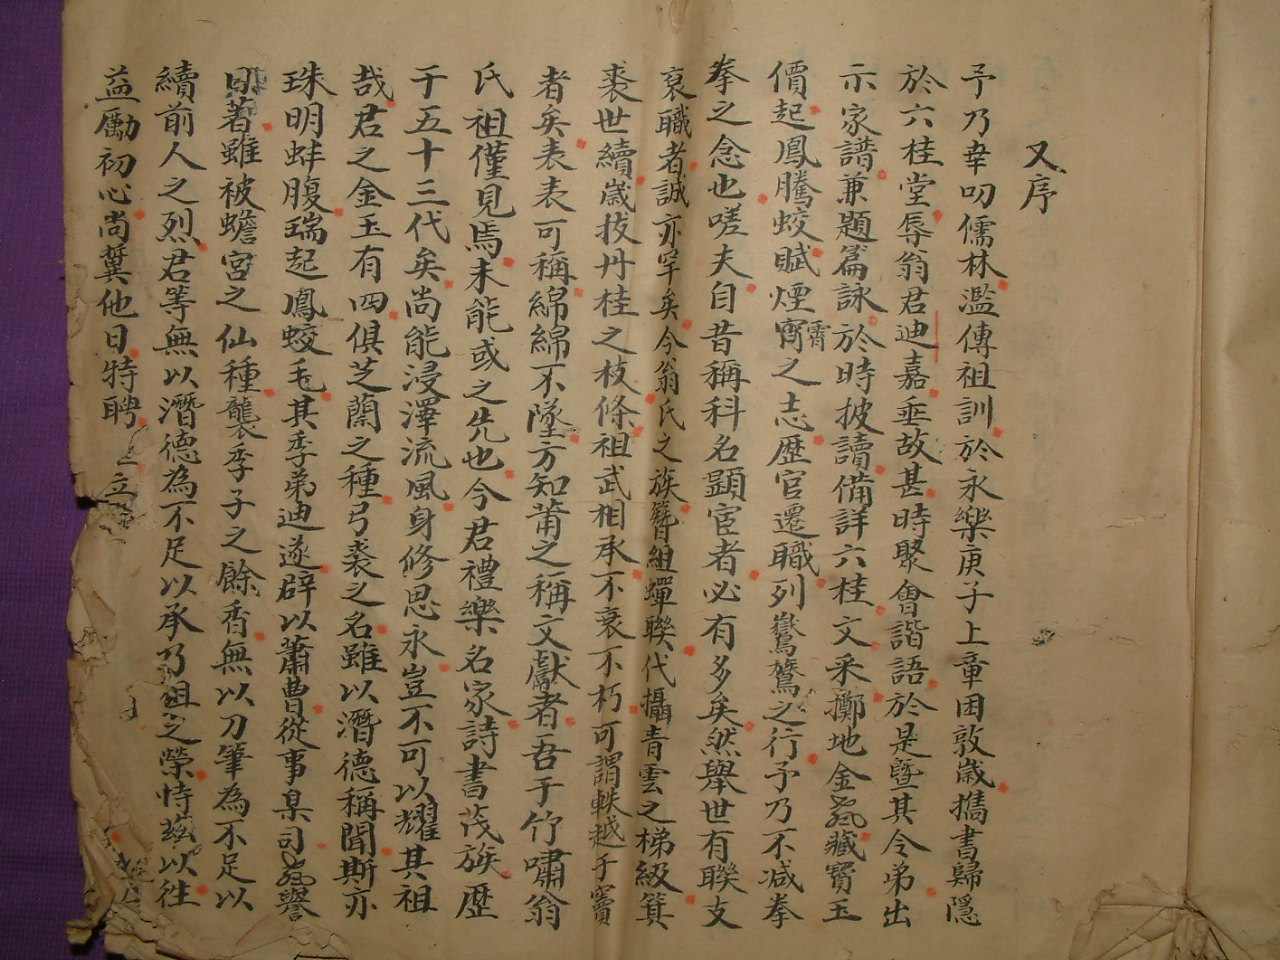 又序
予乃幸叨儒林濫傳祖訓於永樂庚子上章困敦歲攜書歸隱
於六桂堂辱翁君迪嘉垂故甚時聚會諧語於是暨其令弟出
示家譜兼題篇詠於時披讀備詳六桂文采擲地金聲藏寶玉
價起鳳騰蛟賦煙霄之志歷官遷職列鴛鷺之行予乃不減拳
拳之念也嗟夫自昔稱科名顯宦者必有多矣然舉世有聯支
袞職者誠亦罕矣今翁氏之族簪組蟬聯代攝青雲之梯級箕
裘世續歲拔丹桂之枝條祖武相承不衰不朽可謂軼越于竇
者矣表表可稱綿綿不墜方知莆之稱文獻者吾于竹嘯翁
氏祖僅見焉未能或之先也今君禮樂名家詩書茂族歷
千五十三代矣尚能浸澤流風身修思永豈不可以耀其祖
哉君之金玉有四俱芝蘭之種弓裘之名雖以潛德稱聞斯亦
珠明蚌腹瑞起鳳蛟毛其季弟迪遂辟以蕭曹從事臬司聲譽
著雖被蟾宮之仙種襲季子之餘香無以刀筆為不足以
續前人之烈君等無以潛德為不足以承乃祖之榮恃茲以往
益勵初心尚冀他日特聘立